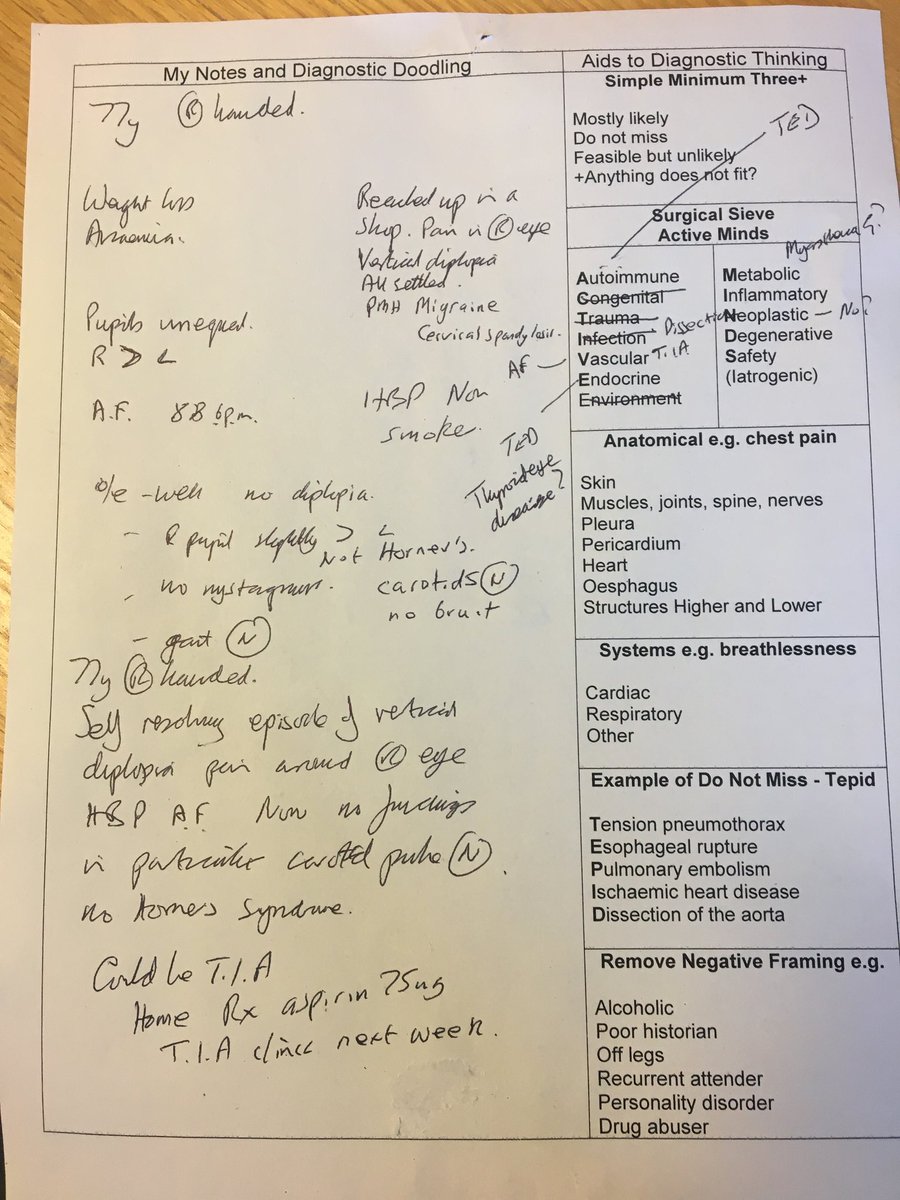 My Notes and Diagnostic Doodling
R handed.
Weight loss
Anaemia.
Pupils unequal.
R > L
A.F. 88 bpm.
Reached up in a
shop. Pain in R eye
Vertical diplopia
All settled.
PMH Migraine
Cervical spondylosis.
HBP Non
smoke.
o/e - well no diplopia.
- R pupil slightly > L
Not Horner's.
- no nystagmus.
carotids N
no bruit
- gait N
R handed.
Self resolving episode of vertical
diplopia pain around R eye
HBP A.F. Now no findings
in particular carotid pulse N.
no Horners Syndrome.
Could be T.I.A
Home Rx aspirin 75mg
T.I.A clinic next week.
Aids to Diagnostic Thinking
Simple Minimum Three+
Mostly likely
Do not miss
Feasible but unlikely
+Anything does not fit?
TED
Surgical Sieve
Active Minds
Myasthenia G?
Autoimmune
Congenital
Trauma
Infection
Dissection
Vascular T.I.A
AF
Endocrine
Environment
TED
Thyroid eye
disease?
Metabolic
Inflammatory
Neoplastic — No?
Degenerative
Safety
(Iatrogenic)
Anatomical e.g. chest pain
Skin
Muscles, joints, spine, nerves
Pleura
Pericardium
Heart
Oesphagus
Structures Higher and Lower
Systems e.g. breathlessness
Cardiac
Respiratory
Other
Example of Do Not Miss - Tepid
Tension pneumothorax
Esophageal rupture
Pulmonary embolism
Ischaemic heart disease
Dissection of the aorta
Remove Negative Framing e.g.
Alcoholic
Poor historian
Off legs
Recurrent attender
Personality disorder
Drug abuser